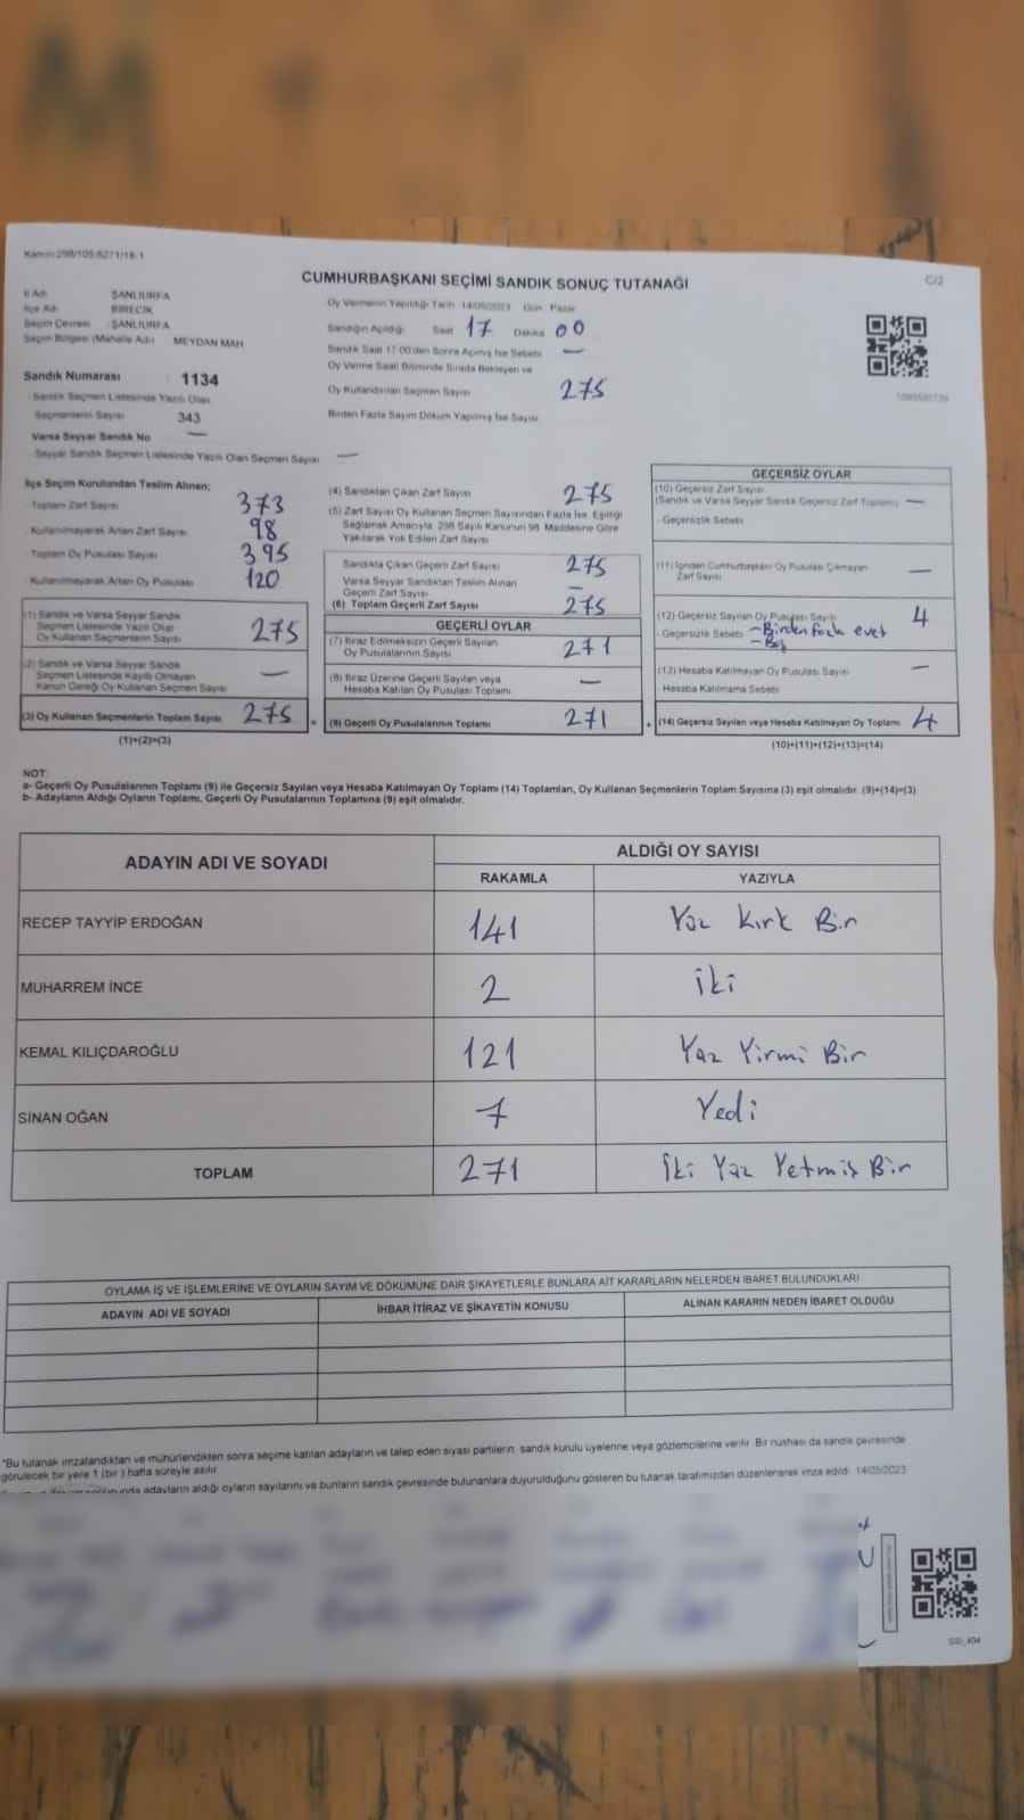 CUMHURBAŞKANI SEÇİMİ SANDIK SONUÇ TUTANAĞI
C/2
İl Adı ŞANLIURFA
İlçe Adı BİRECİK
Seçim Çevresi ŞANLIURFA
Seçim Bölgesi (Mahalle Adı) MEYDAN MAH
Sandık Numarası 1134
Sandık Seçmen Listesinde Yazılı Olan
Seçmenlerin Sayısı 343
Varsa Seyyar Sandık No —
Seyyar Sandık Seçmen Listesinde Yazılı Olan Seçmen Sayısı —
Oy Vermenin Yapıldığı Tarih 14/05/2023 Gün Pazar
Sandığın Açıldığı Saat 17 Dakika 00
Sandık Saat 17:00'den Sonra Açılmış İse Sebebi —
Oy Verme Saati Bitiminde Sırada Bekleyen ve
Oy Kullandırılan Seçmen Sayısı 275
Birden Fazla Sayım Döküm Yapılmış İse Sayısı
İlçe Seçim Kurulundan Teslim Alınan;
Toplam Zarf Sayısı 373
Kullanılmayarak Artan Zarf Sayısı 98
Toplam Oy Pusulası Sayısı 395
Kullanılmayarak Artan Oy Pusulası 120
(1) Sandık ve Varsa Seyyar Sandık
Seçmen Listesinde Yazılı Olup
Oy Kullanan Seçmenlerin Sayısı 275
(2) Sandık ve Varsa Seyyar Sandık
Seçmen Listesinde Kayıtlı Olmayan
Kanun Gereği Oy Kullanan Seçmen Sayısı —
(3) Oy Kullanan Seçmenlerin Toplam Sayısı 275
(1)+(2)=(3)
(4) Sandıktan Çıkan Zarf Sayısı 275
(5) Zarf Sayısı Oy Kullanan Seçmen Sayısından Fazla İse, Eşitliği
Sağlamak Amacıyla, 298 Sayılı Kanunun 98. Maddesine Göre
Yakılarak Yok Edilen Zarf Sayısı
Sandıkta Çıkan Geçerli Zarf Sayısı 275
Varsa Seyyar Sandıktan Teslim Alınan
Geçerli Zarf Sayısı —
(6) Toplam Geçerli Zarf Sayısı 275
GEÇERLİ OYLAR
(7) İtiraz Edilmeksizin Geçerli Sayılan
Oy Pusulalarının Sayısı 271
(8) İtiraz Üzerine Geçerli Sayılan veya
Hesaba Katılan Oy Pusulası Toplamı —
(9) Geçerli Oy Pusulalarının Toplamı 271
GEÇERSİZ OYLAR
(10) Geçersiz Zarf Sayısı
(Sandık ve Varsa Seyyar Sandık Geçersiz Zarf Toplamı) —
Geçersizlik Sebebi
(11) İçinden Cumhurbaşkanı Oy Pusulası Çıkmayan
Zarf Sayısı —
(12) Geçersiz Sayılan Oy Pusulası Sayısı 4
Geçersizlik Sebebi - Birden fazla evet
(13) Hesaba Katılmayan Oy Pusulası Sayısı —
Hesaba Katılmama Sebebi
(14) Geçersiz Sayılan veya Hesaba Katılmayan Oy Toplamı 4
(10)+(11)+(12)+(13)=(14)
NOT:
a- Geçerli Oy Pusulalarının Toplamı (9) ile Geçersiz Sayılan veya Hesaba Katılmayan Oy Toplamı (14) Toplamları, Oy Kullanan Seçmenlerin Toplam Sayısına (3) eşit olmalıdır. (9)+(14)=(3)
b- Adayların Aldığı Oyların Toplamı, Geçerli Oy Pusulalarının Toplamına (9) eşit olmalıdır.
ADAYIN ADI VE SOYADI ALDIĞI OY SAYISI
RAKAMLA YAZIYLA
RECEP TAYYİP ERDOĞAN 141 Yüz Kırk Bir
MUHARREM İNCE 2 iki
KEMAL KILIÇDAROĞLU 121 Yüz Yirmi Bir
SİNAN OĞAN 7 Yedi
TOPLAM 271 İki Yüz Yetmiş Bir
OYLAMA İŞ VE İŞLEMLERİNE VE OYLARIN SAYIM VE DÖKÜMÜNE DAİR ŞİKAYETLERLE BUNLARA AİT KARARLARIN NELERDEN İBARET BULUNDUKLARI
ADAYIN ADI VE SOYADI İHBAR İTİRAZ VE ŞİKAYETİN KONUSU ALINAN KARARIN NEDEN İBARET OLDUĞU
*Bu tutanak imzalandıktan ve mühürlendikten sonra seçime katılan adayların ve talep eden siyasi partilerin, sandık kurulu üyelerine veya gözlemcilerine verilir. Bir nüshası da sandık çevresinde
görülecek bir yere 1 (bir) hafta süreyle asılır.
adayların aldığı oyların sayılarını ve bunların sandık çevresinde bulunanlara duyurulduğunu gösteren bu tutanak tarafımızdan düzenlenerek imza edildi. 14/05/2023